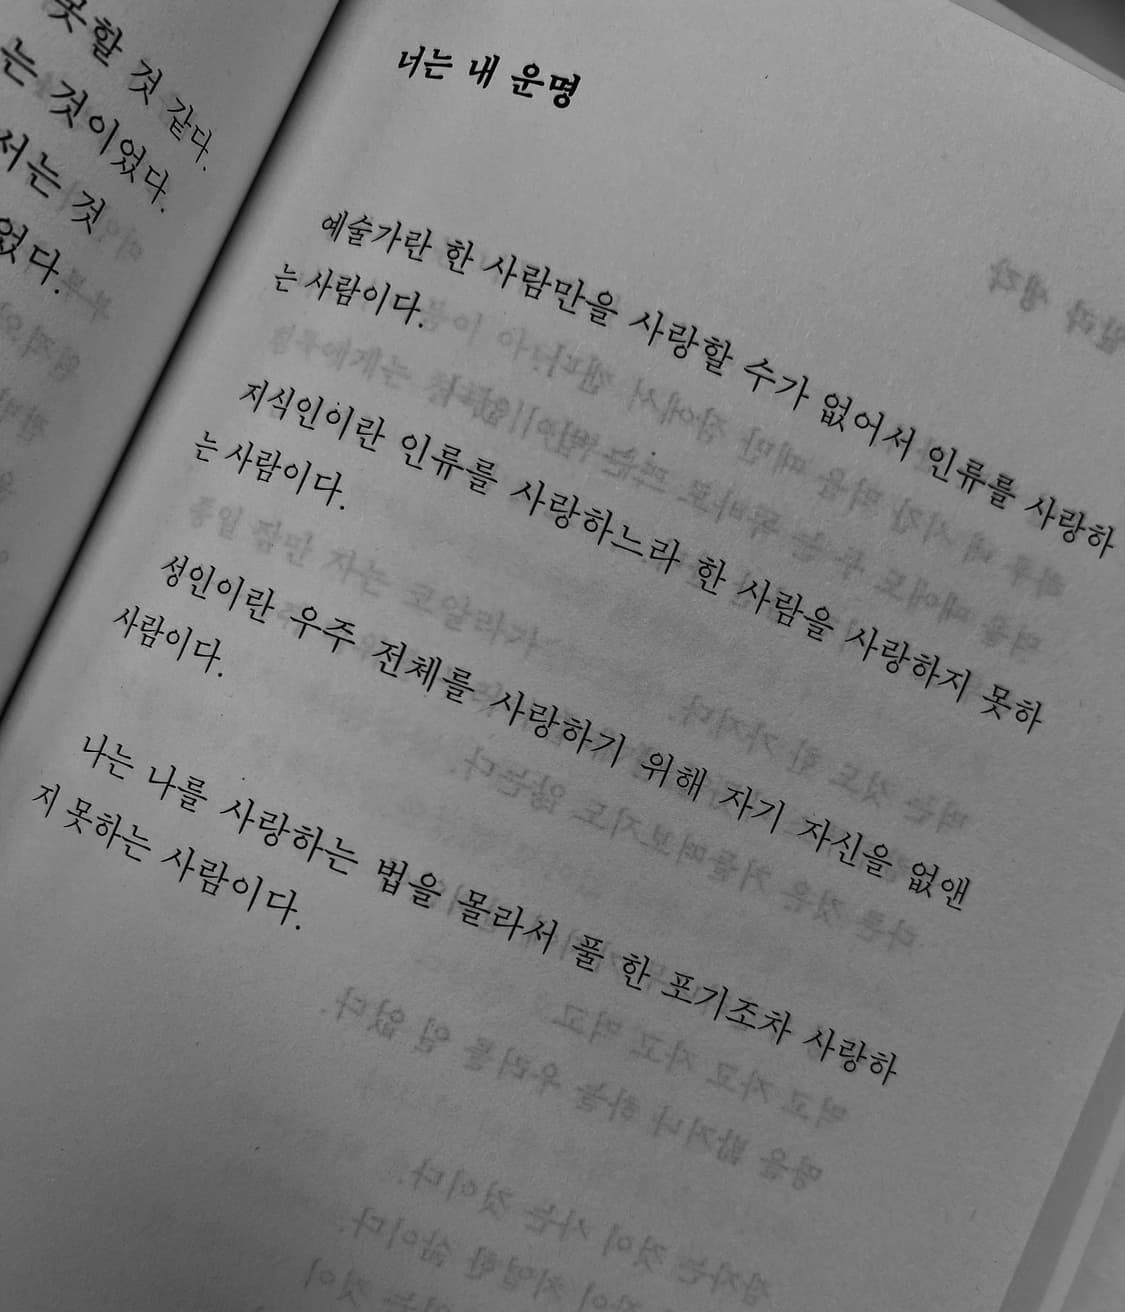 못할 것 같다.
는 것이었다.
서는 것
었다.
너는 내 운명
예술가란 한 사람만을 사랑할 수가 없어서 인류를 사랑하
는 사람이다.
지식인이란 인류를 사랑하느라 한 사람을 사랑하지 못하
는 사람이다.
성인이란 우주 전체를 사랑하기 위해 자기 자신을 없앤
사람이다.
나는 나를 사랑하는 법을 몰라서 풀 한 포기조차 사랑하
지 못하는 사람이다.